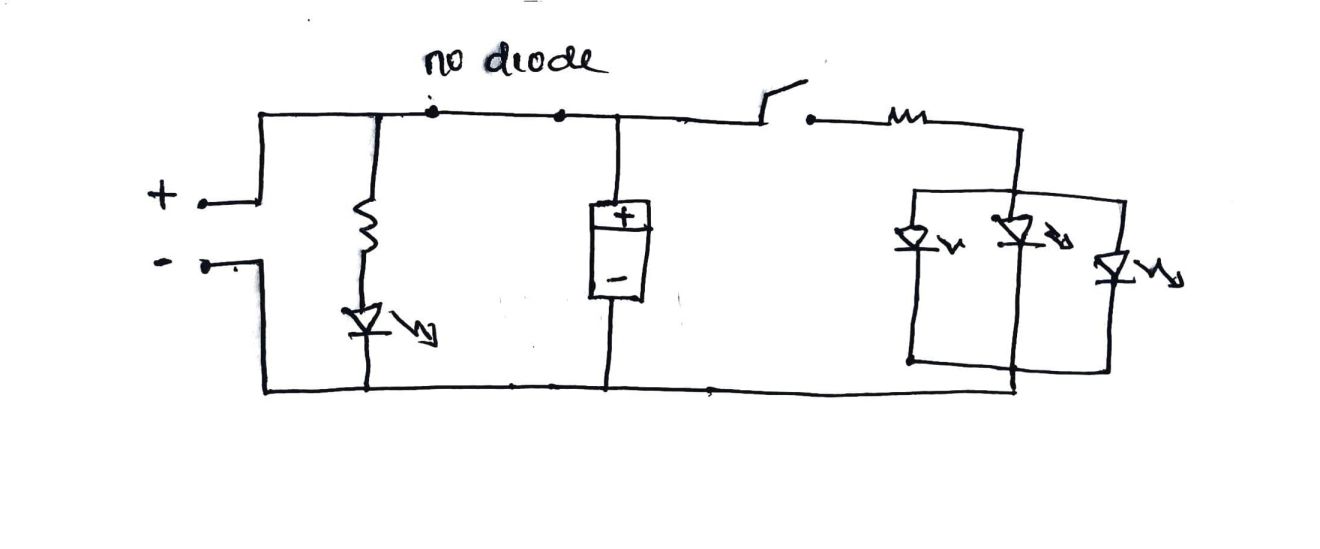 no diode
+
-
+
-